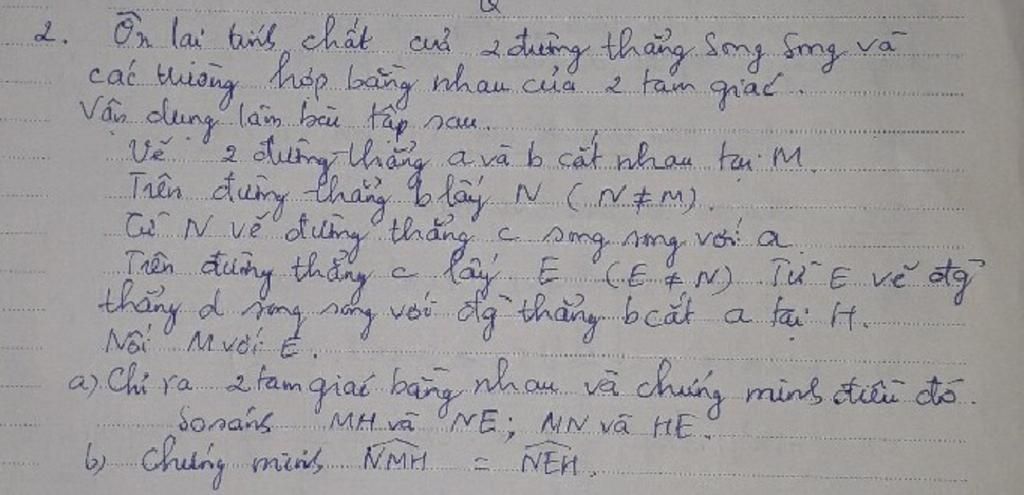 2. Ôn lại tính chất của 2 đường thẳng song song và
các trường hợp bằng nhau của 2 tam giác.
Vận dụng làm bài tập sau.
Vẽ 2 đường thẳng a và b cắt nhau tại M.
Trên đường thẳng b lấy N (N ≠ M).
Từ N vẽ đường thẳng c song song với a
Trên đường thẳng c lấy E (E ≠ N). Từ E vẽ đg
thẳng d song song với đg thẳng b cắt a tại H.
Nối M với E.
a) Chỉ ra 2 tam giác bằng nhau và chứng minh điều đó.
So sánh MH và NE; MN và HE.
b) Chứng minh \widehat{NMH} = \widehat{NEH}.